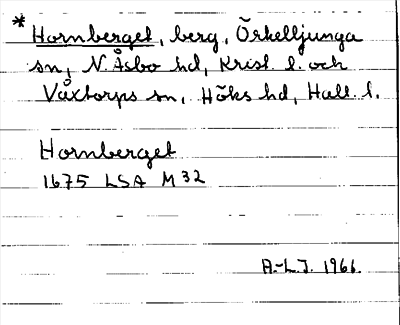 * Hornberget, berg, Örkelljunga
sn, N. Åsbo hd, Krist l. och
Våxtorps sn, Höks hd, Hall. l.
Hornberget
1675 LSA M 32
A.-L.J. 1966.